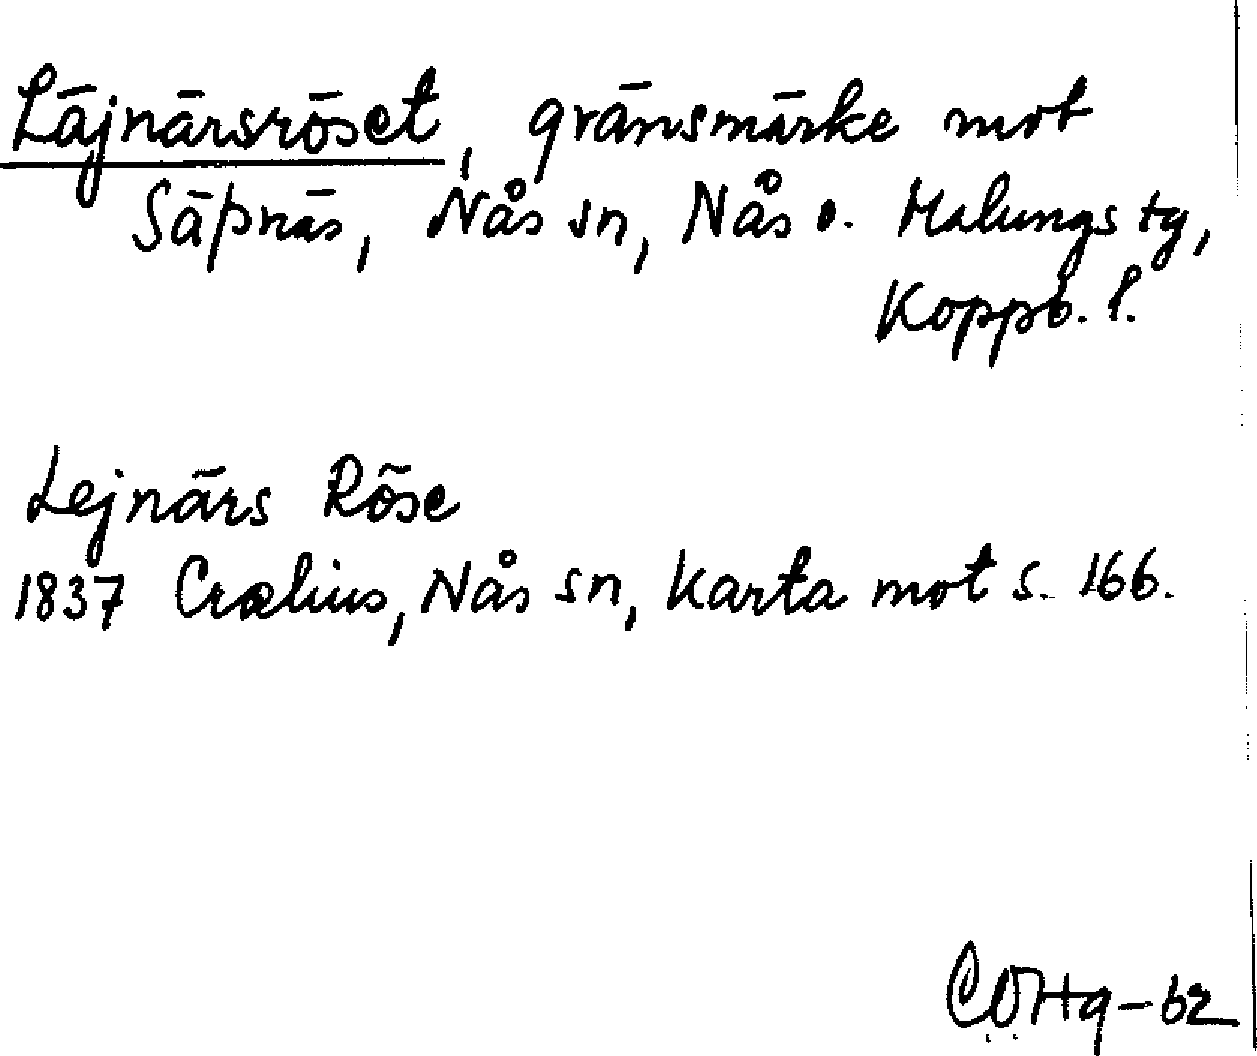 Läjnärsröset, gränsmärke mot
Säpnäs, Nås sn, Nås o. Malungs tg,
Koppb. l.
Lejnärs Röse
1837 Crælius, Nås sn, Karta mot s. 166.